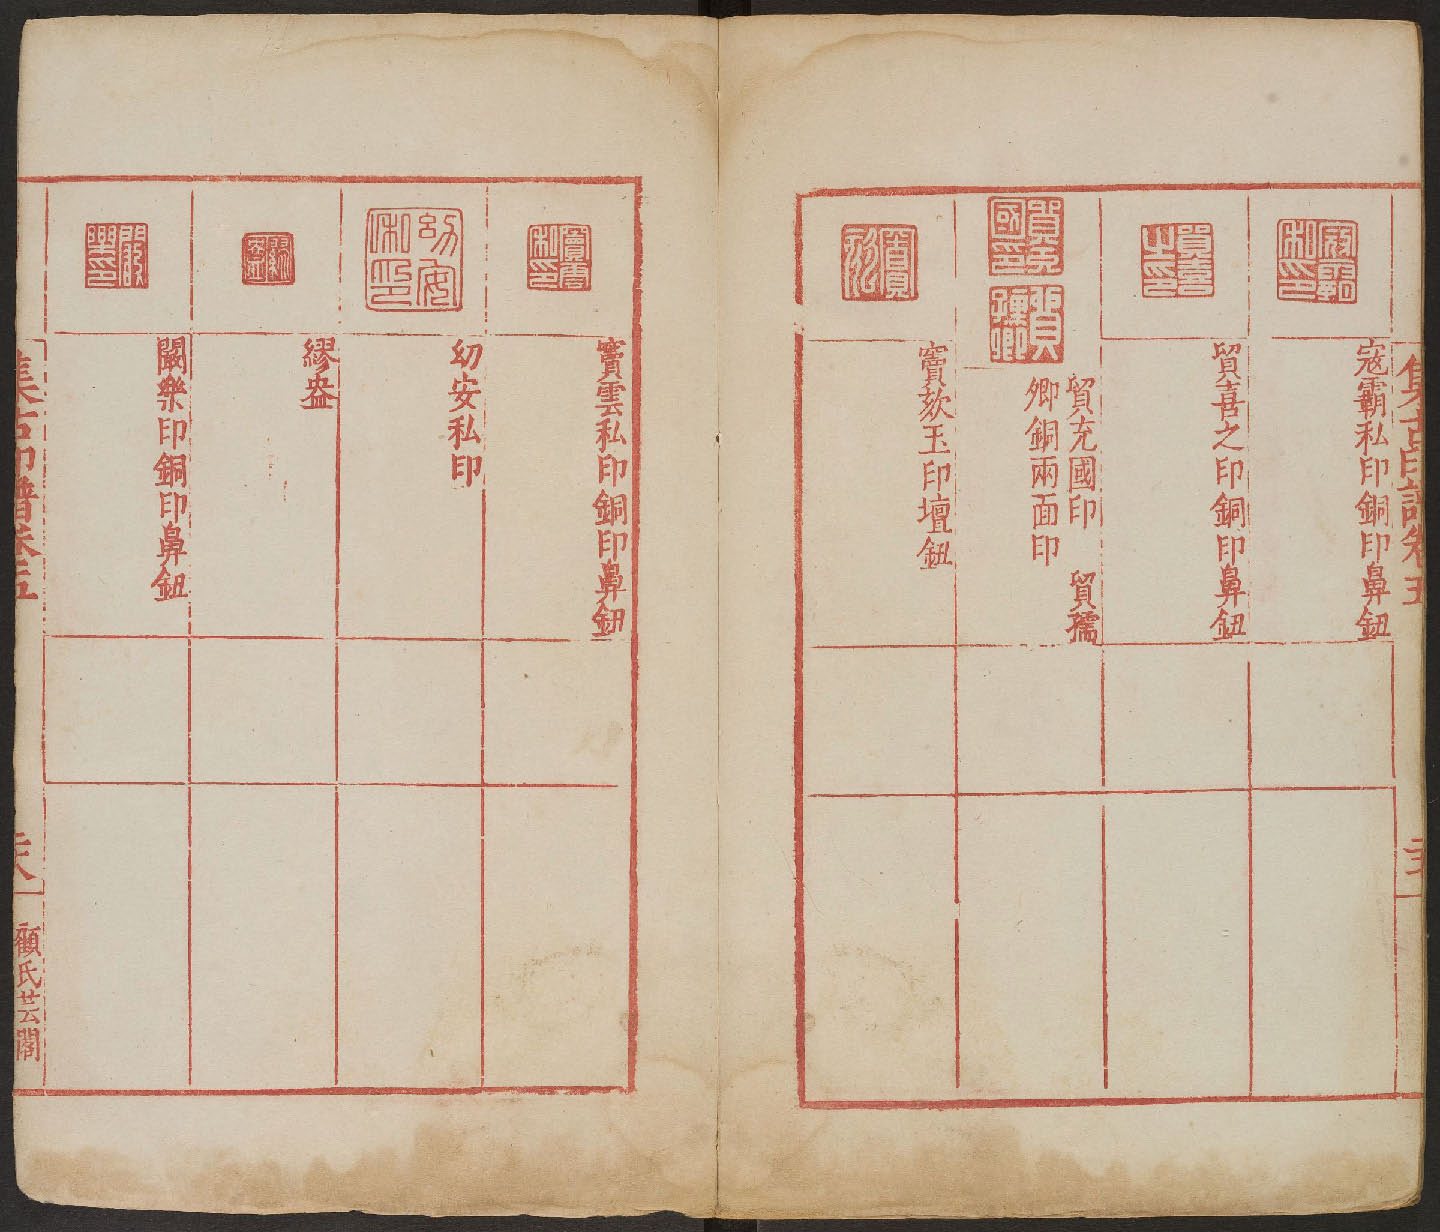 集古印譜卷五
寇霸私印銅印鼻鈕
貿喜之印銅印鼻鈕
貿充國印　貿孺
卿銅兩面印
竇欬玉印壇鈕
竇雲私印銅印鼻鈕
幼安私印
繆盎
闞樂印銅印鼻鈕
集古印譜卷五
顧氏芸閣